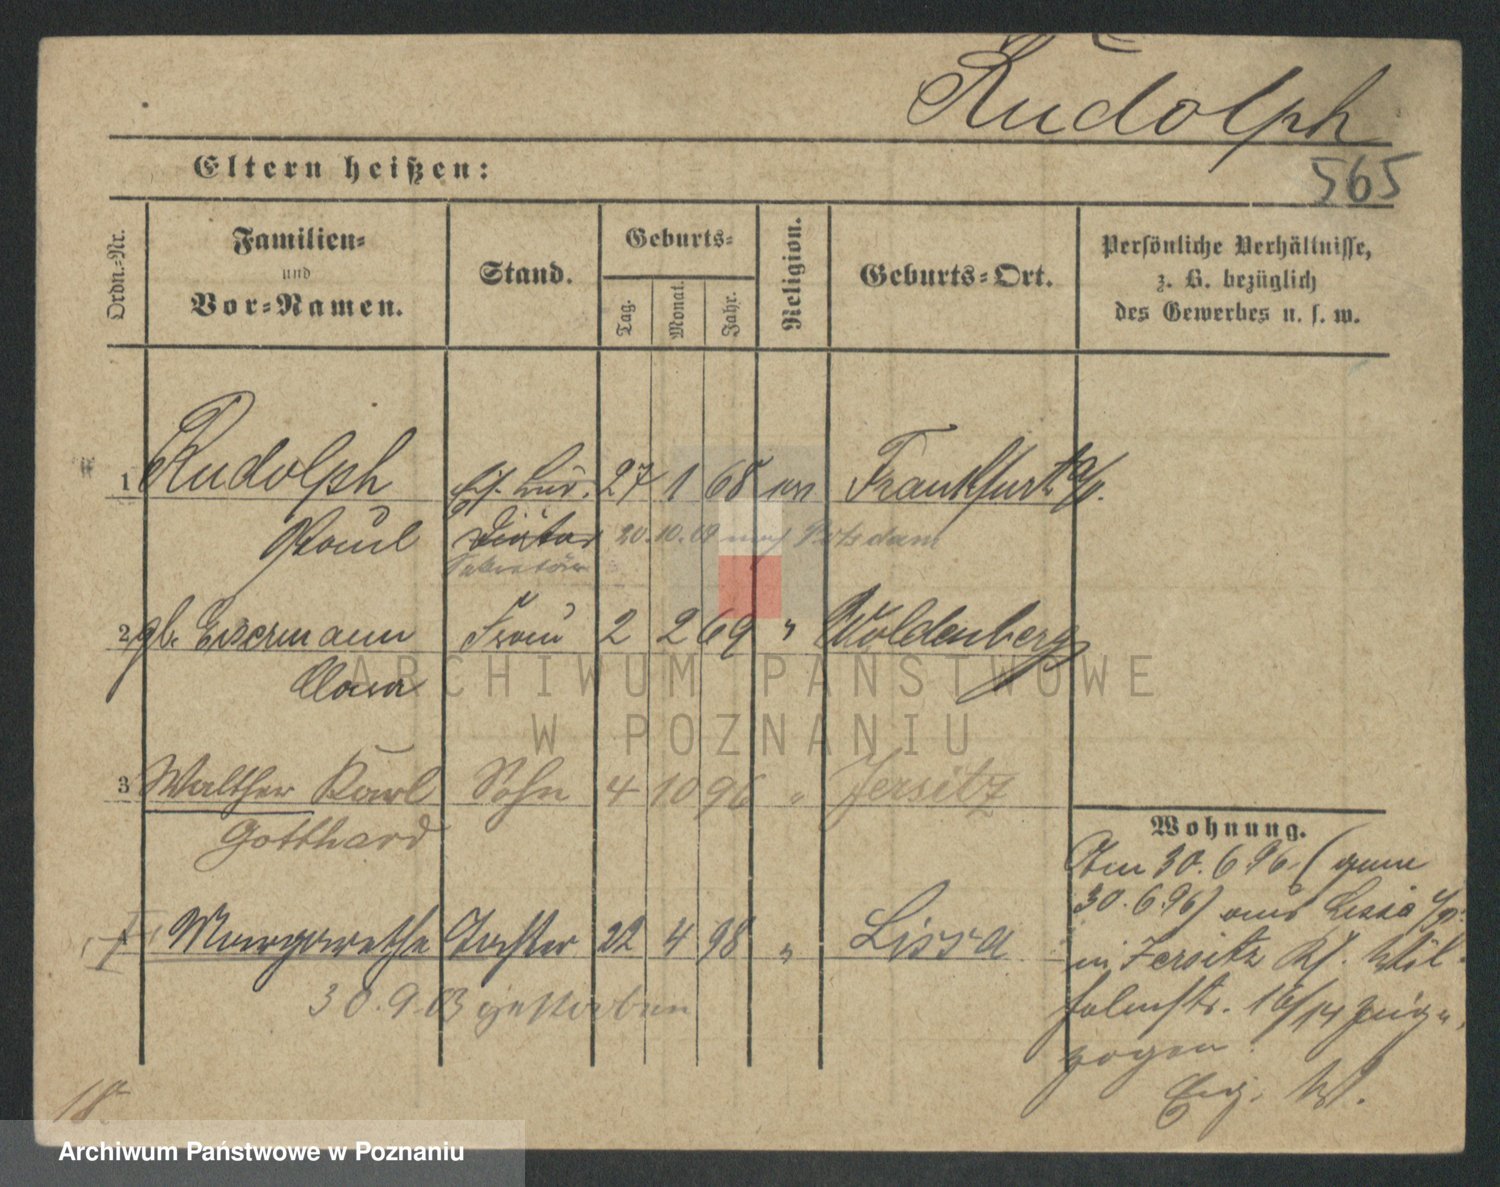 Rudolph
565
Eltern heißen:
Ordn.-Nr.
Familien-
und
Vor-Namen.
Stand.
Geburts-
Tag.
Monat.
Jahr.
Religion.
Geburts-Ort.
Persönliche Verhältnisse,
z. B. bezüglich
des Gewerbes u. s. w.
1 Rudolph 27 1 68 Frankfurt a/O.
Paul Diätar 20.10.09 nach Potsdam
Sekretär
2 gb. Eisermann Frau 2 2 69 " Woldenberg
Clara
ARCHIWUM PAŃSTWOWE
W POZNANIU
3 Walther Karl Sohn 4 10 96 " Jersitz
Gotthard
Margarethe Tochter 22 4 98 " Lissa
30.9.03 gestorben
Wohnung.
Am 30.6 96 (
30.6 96) aus Lissa
in Jersitz
16/17
zogen
18
Archiwum Państwowe w Poznaniu